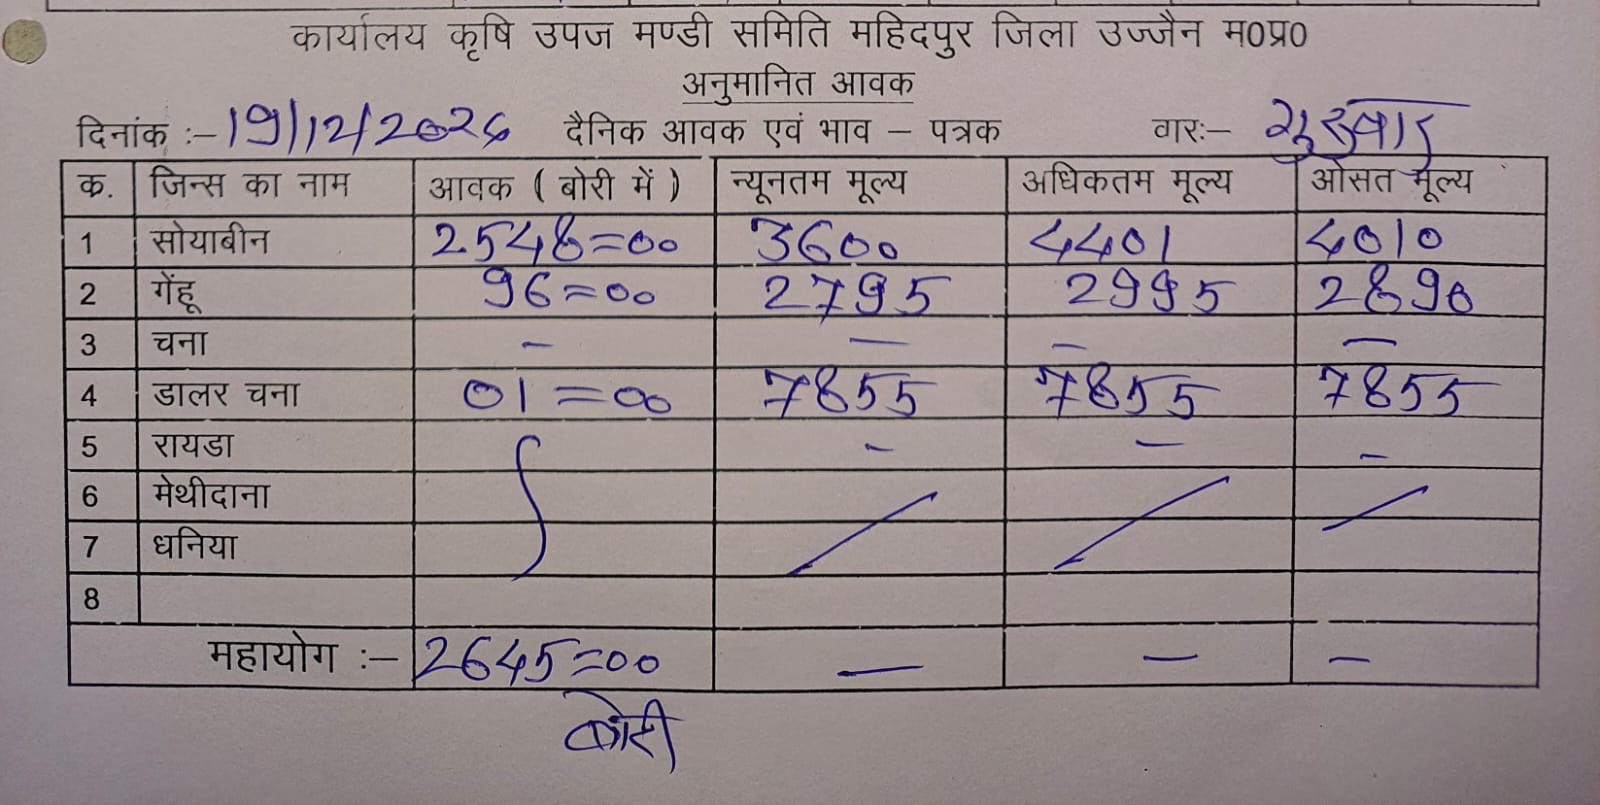 कार्यालय कृषि उपज मण्डी समिति महिदपुर जिला उज्जैन म0प्र0
अनुमानित आवक
दिनांक :– 19/12/2024 दैनिक आवक एवं भाव – पत्रक वारः– गुरुवार
क. जिन्स का नाम आवक ( बोरी में ) न्यूनतम मूल्य अधिकतम मूल्य ओसत मूल्य
1 सोयाबीन 2548=00 3600 4401 4010
2 गेंहू 96=00 2795 2995 2890
3 चना – — – —
4 डालर चना 01=00 7855 7855 7855
5 रायडा – – –
6 मेथीदाना
7 धनिया
8
महायोग :– 2645=00 — — –
बोरी